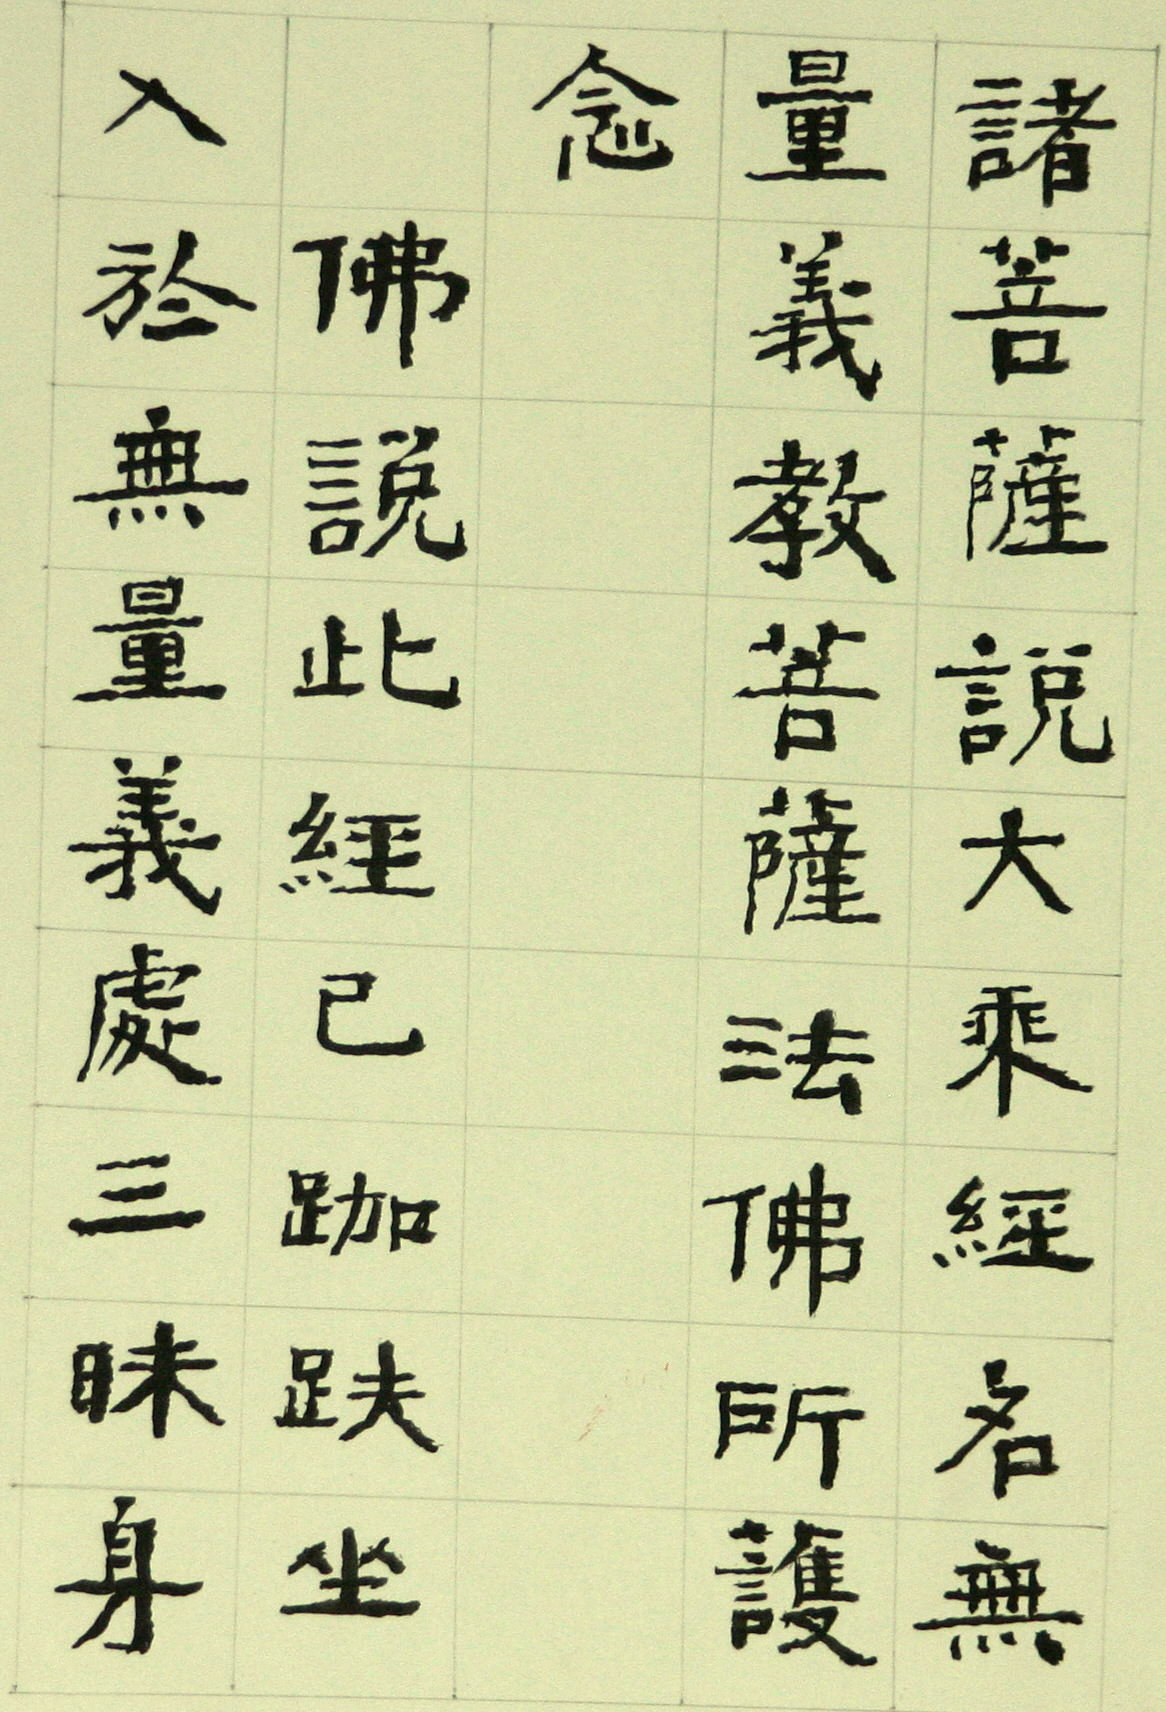 諸菩薩說大乘經名無
量義教菩薩法佛所護
念
佛說此經已跏趺坐
入於無量義處三昧身